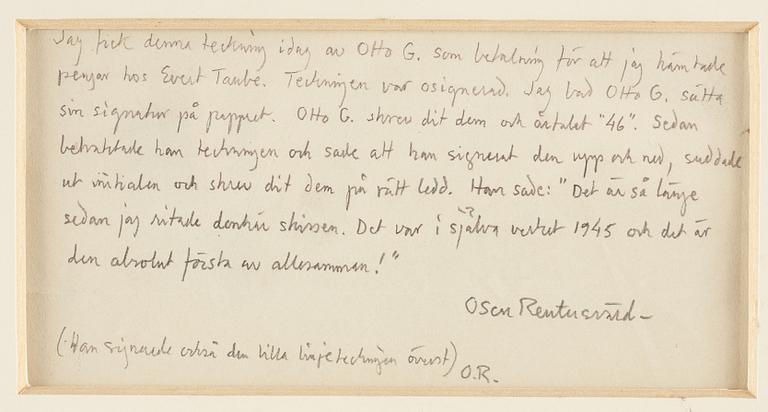 Jag fick denna teckning idag av Otto G. som betalning för att jag hämtade
pengar hos Evert Taube. Teckningen var osignerad. Jag bad Otto G. sätta
sin signatur på pappret. Otto G. skrev dit dem och årtalet "46". Sedan
betraktade han teckningen och sade att han signerat den upp och ned, suddade
ut initialen och skrev dit dem på rätt ledd. Han sade: "Det är så länge
sedan jag ritade denhär skissen. Det var i själva verket 1945 och det är
den absolut första av allesamman!"
Oscar Reutersvärd
(Han signerade också den lilla linjeteckningen överst)
O.R.